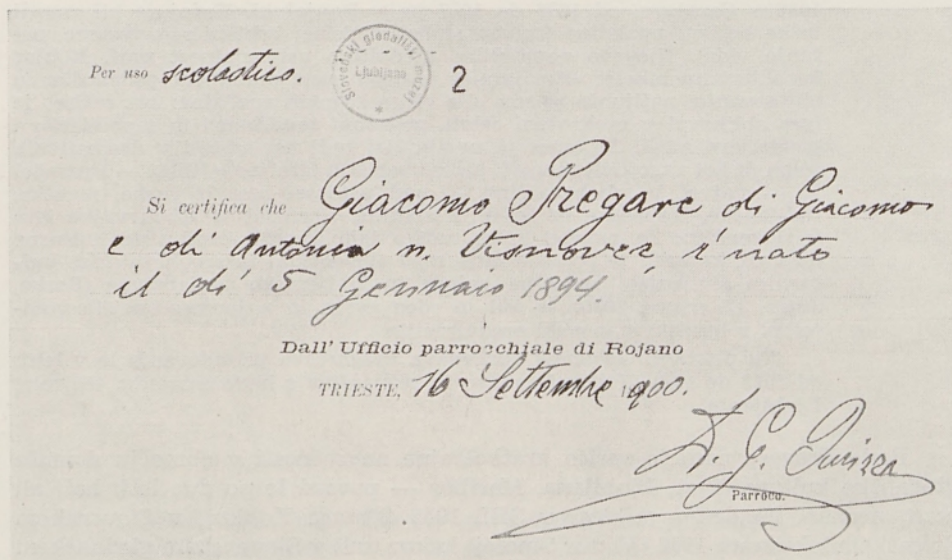 Per uso scolastico.
Slovenski gledališki muzej
Ljubljana
2
Si certifica che Giacomo Pregarc di Giacomo
e di Antonia n. è nato
il dí 5 Gennaio 1894.
Dall' Ufficio parrocchiale di Rojano
TRIESTE, 16 Settembre 1900.
D. G.
Parroco.